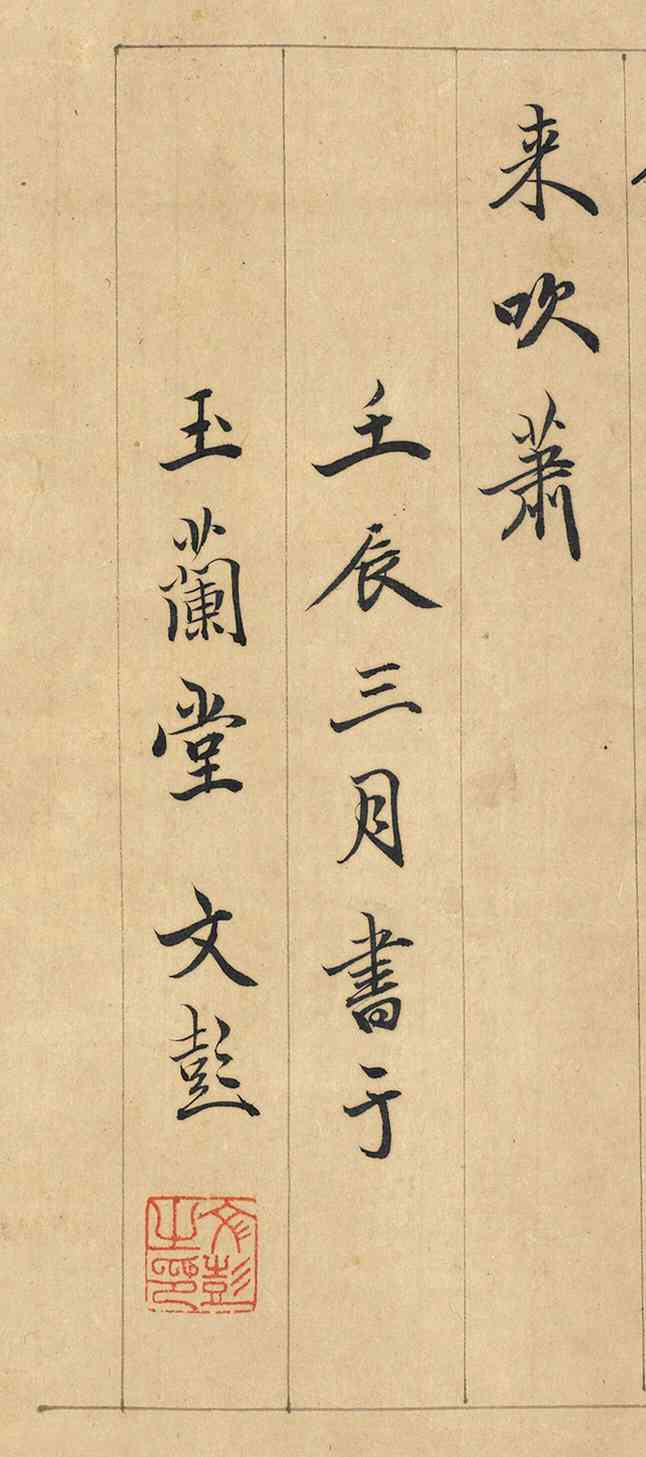 来吹蕭
壬辰三月書于
玉蘭堂 文彭
文彭之印